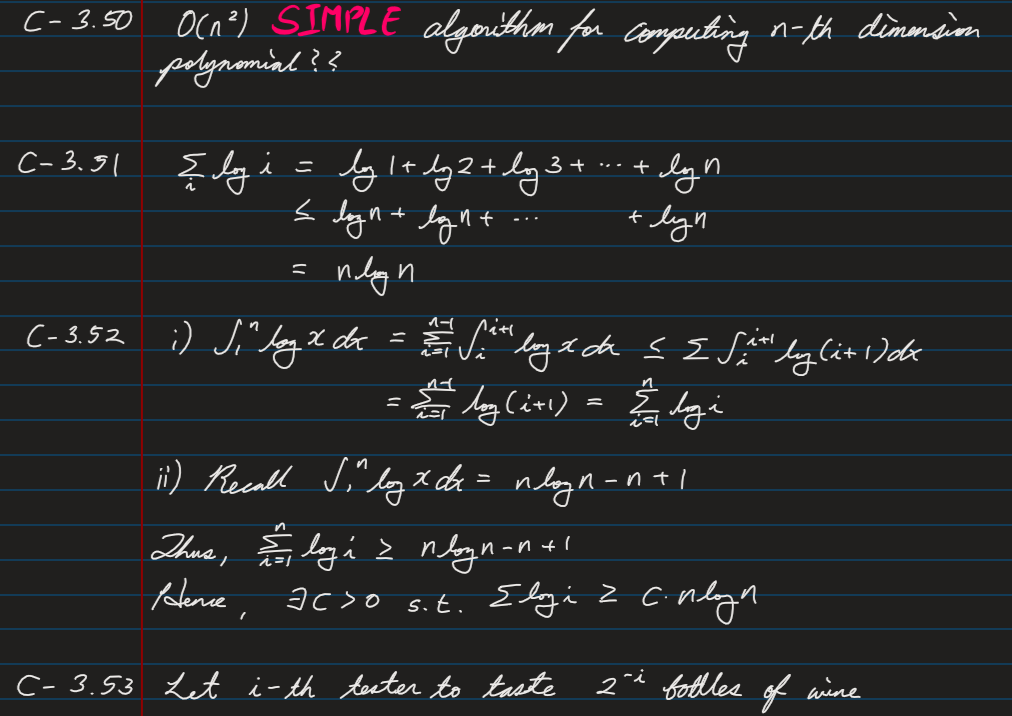 C-3.50 O(n²) SIMPLE algorithm for computing n-th dimension
polynomial??
C-3.51 Σ_i log i = log 1 + log 2 + log 3 + ··· + log n
≤ log n + log n + ··· + log n
= n log n
C-3.52 i) ∫₁ⁿ log x dx = Σ_{i=1}^{n-1} ∫_i^{i+1} log x dx ≤ Σ ∫_i^{i+1} log(i+1) dx
= Σ_{i=1}^{n-1} log(i+1) = Σ_{i=1}^{n} log i
ii) Recall ∫₁ⁿ log x dx = n log n - n + 1
Thus, Σ_{i=1}^{n} log i ≥ n log n - n + 1
Hence, ∃C > 0 s.t. Σ log i ≥ C · n log n
C-3.53 Let i-th tester to taste 2^{-i} bottles of wine